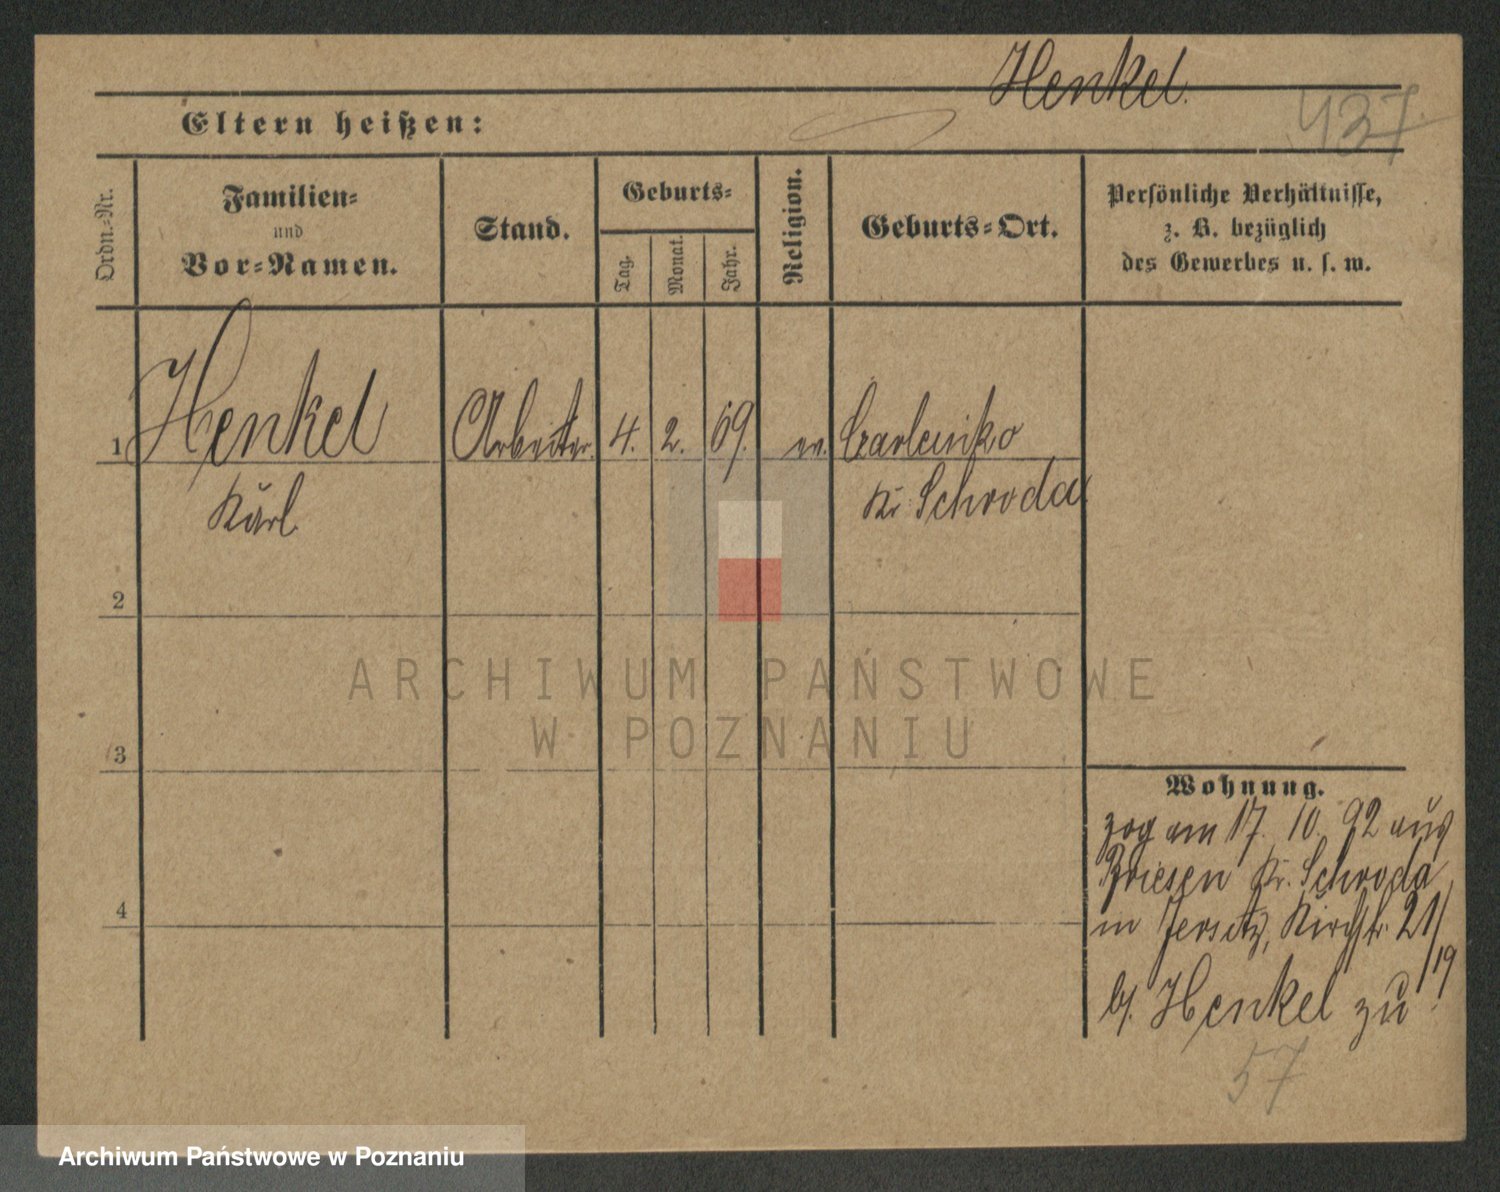 Henkel.
437
Eltern heißen:
Ordn.-Nr.
Familien-
und
Vor-Namen.
Stand.
Geburts-
Tag.
Monat.
Jahr.
Religion.
Geburts-Ort.
Persönliche Verhältnisse,
z. B. bezüglich
des Gewerbes u. s. w.
1 Henkel Arbeiter. 4. 2. 69. ev.
Karl Kr. Schroda
2
ARCHIWUM PAŃSTWOWE
W POZNANIU
3
Wohnung.
zog am 17. 10. 92 aus
Briesen Kr. Schroda
4
in Jersitz, Kirchstr. 21/
/19
b/. Henkel zu
57
Archiwum Państwowe w Poznaniu